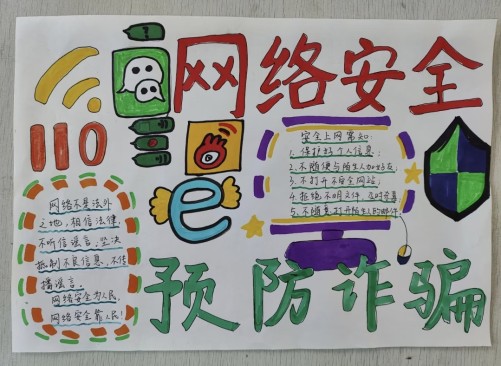 网络安全
110
安全上网常识:
1. 保护好个人信息;
2. 不随便与陌生人加好友;
3. 不打开不安全网站;
4. 拒绝不明文件,及时杀毒;
5. 不随意打开陌生人的邮件;
网络不是法外
之地,相信法律,
不听信谣言,坚决
抵制不良信息,不传
播谣言。
网络安全为人民,
网络安全靠人民!
e
预防诈骗